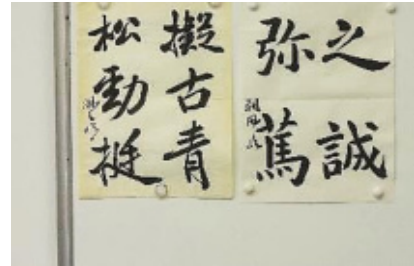 擬古青
松勁挺
之誠
弥篤